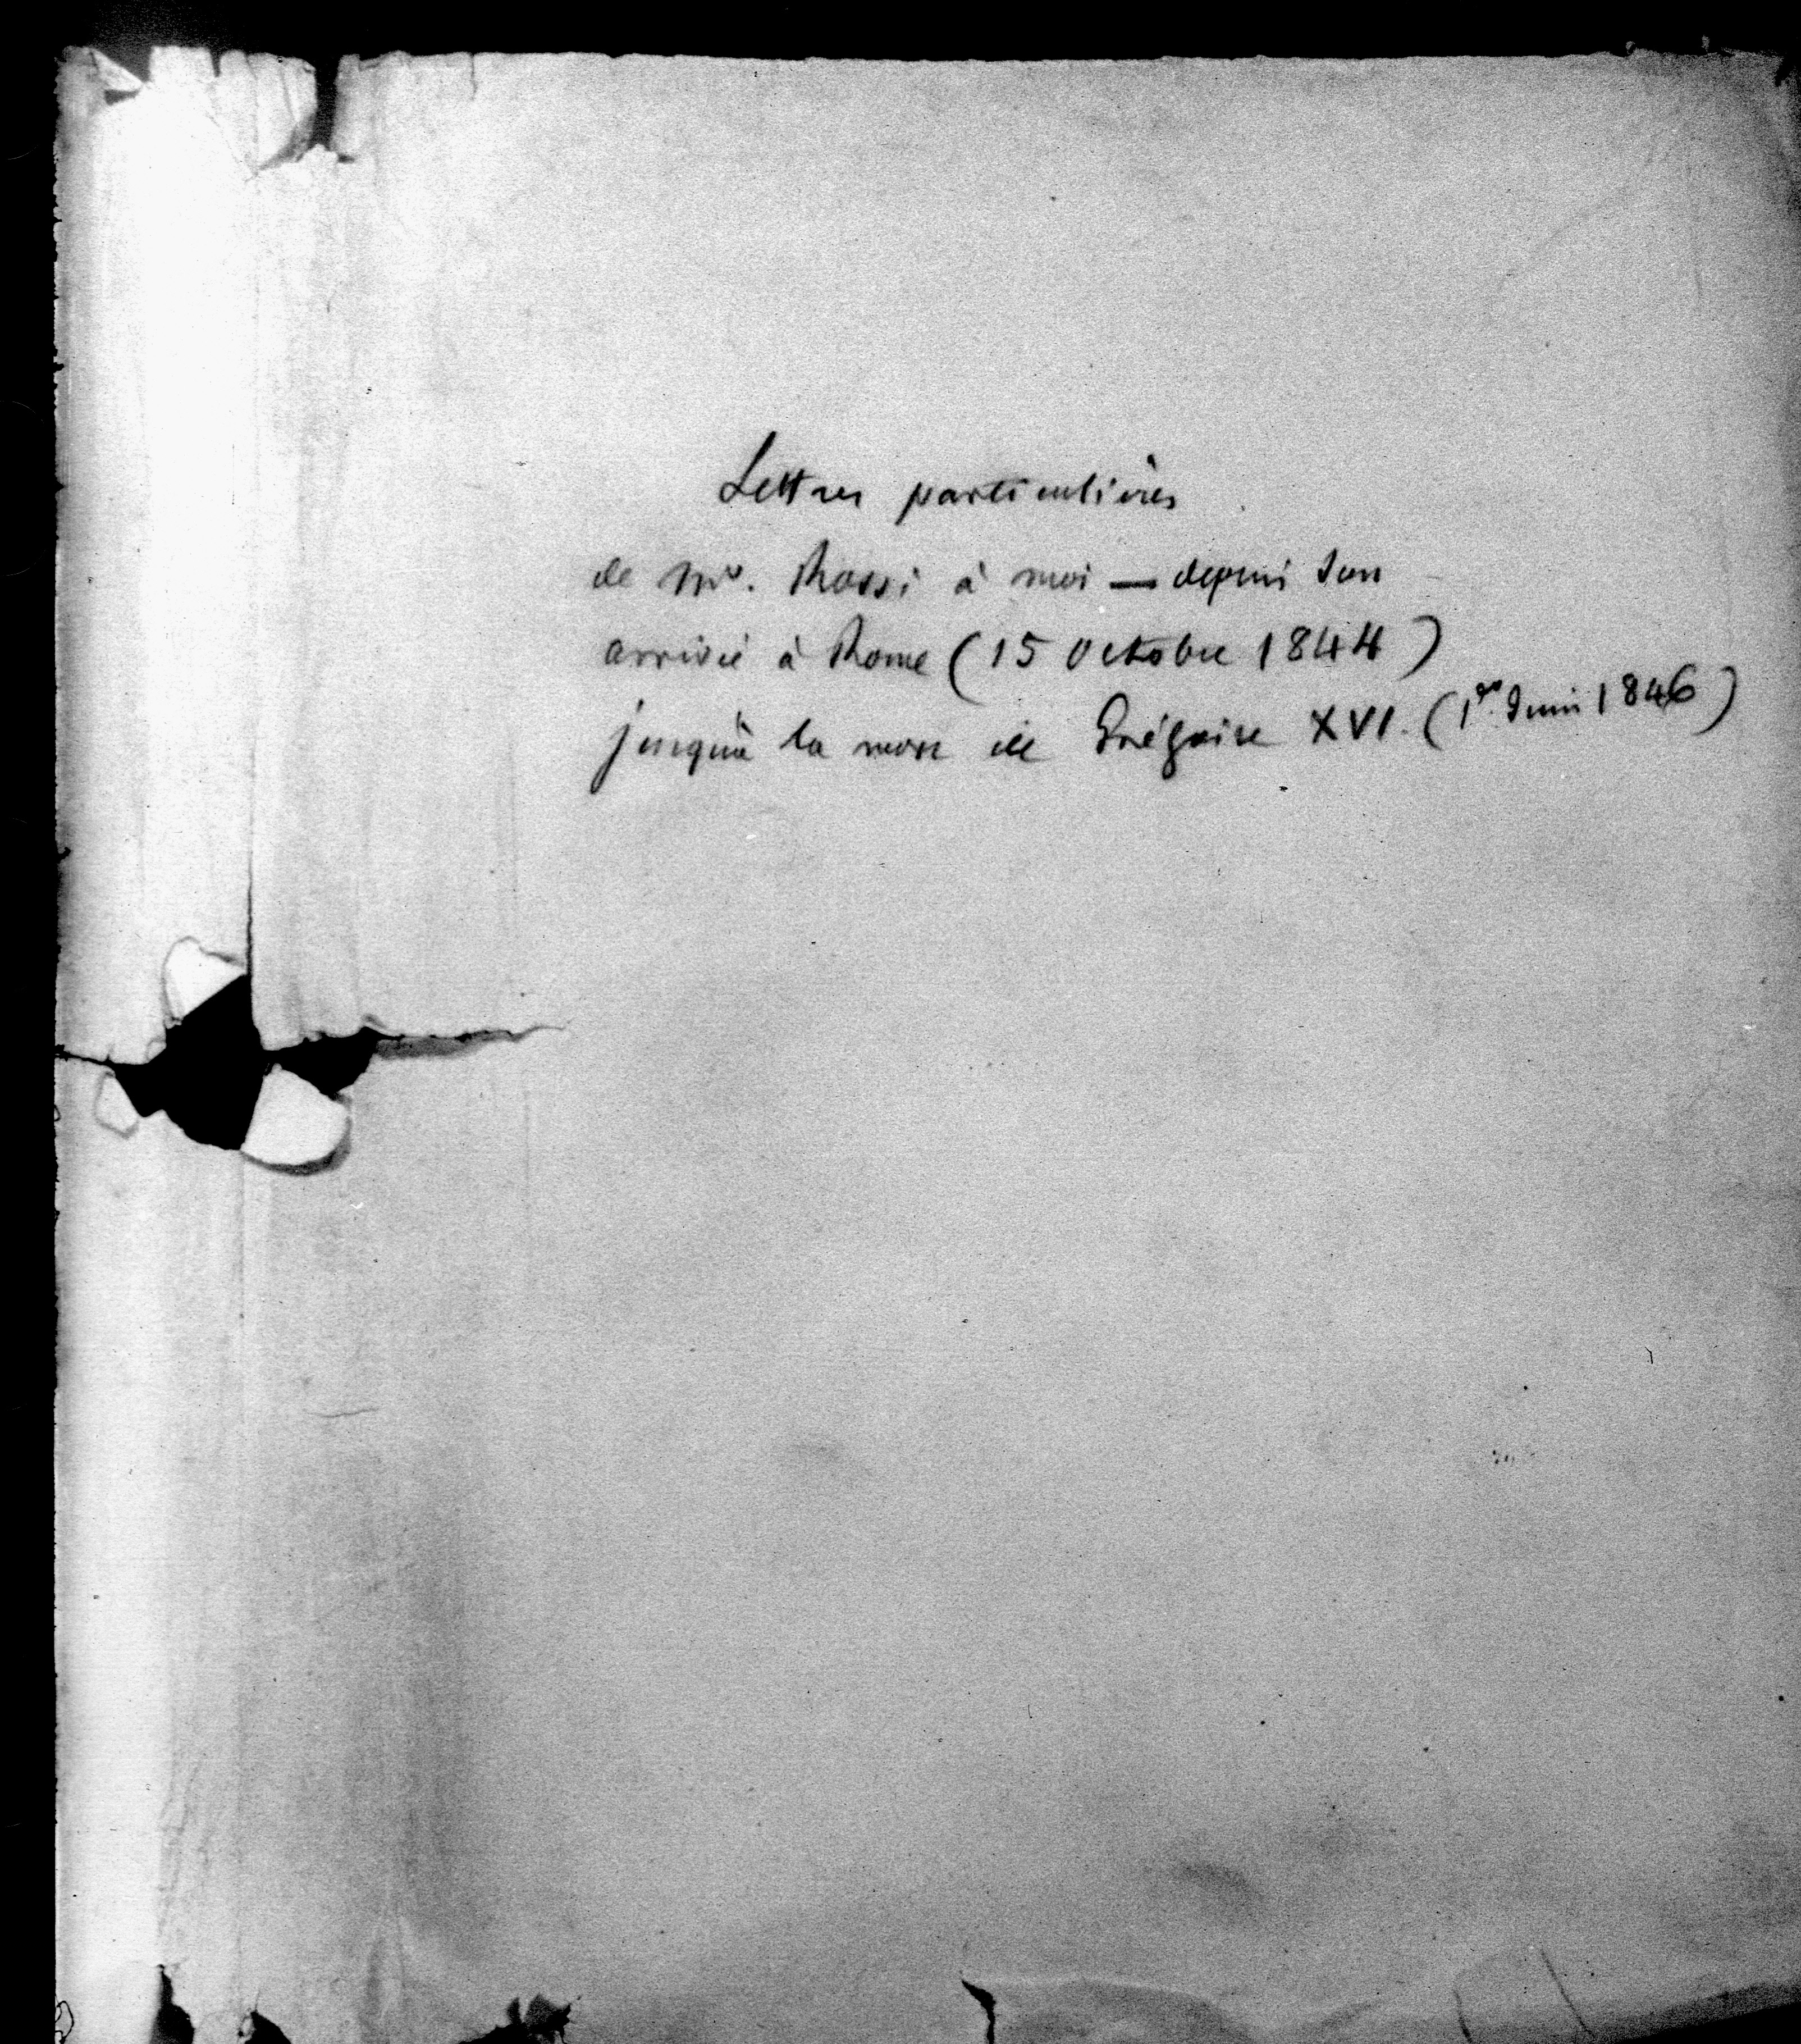 Lettres particulières
de Mr. Rossi à moi — depuis son
arrivée à Rome (15 octobre 1844)
jusqu'à la mort de Grégoire XVI. (1er. Juin 1846)